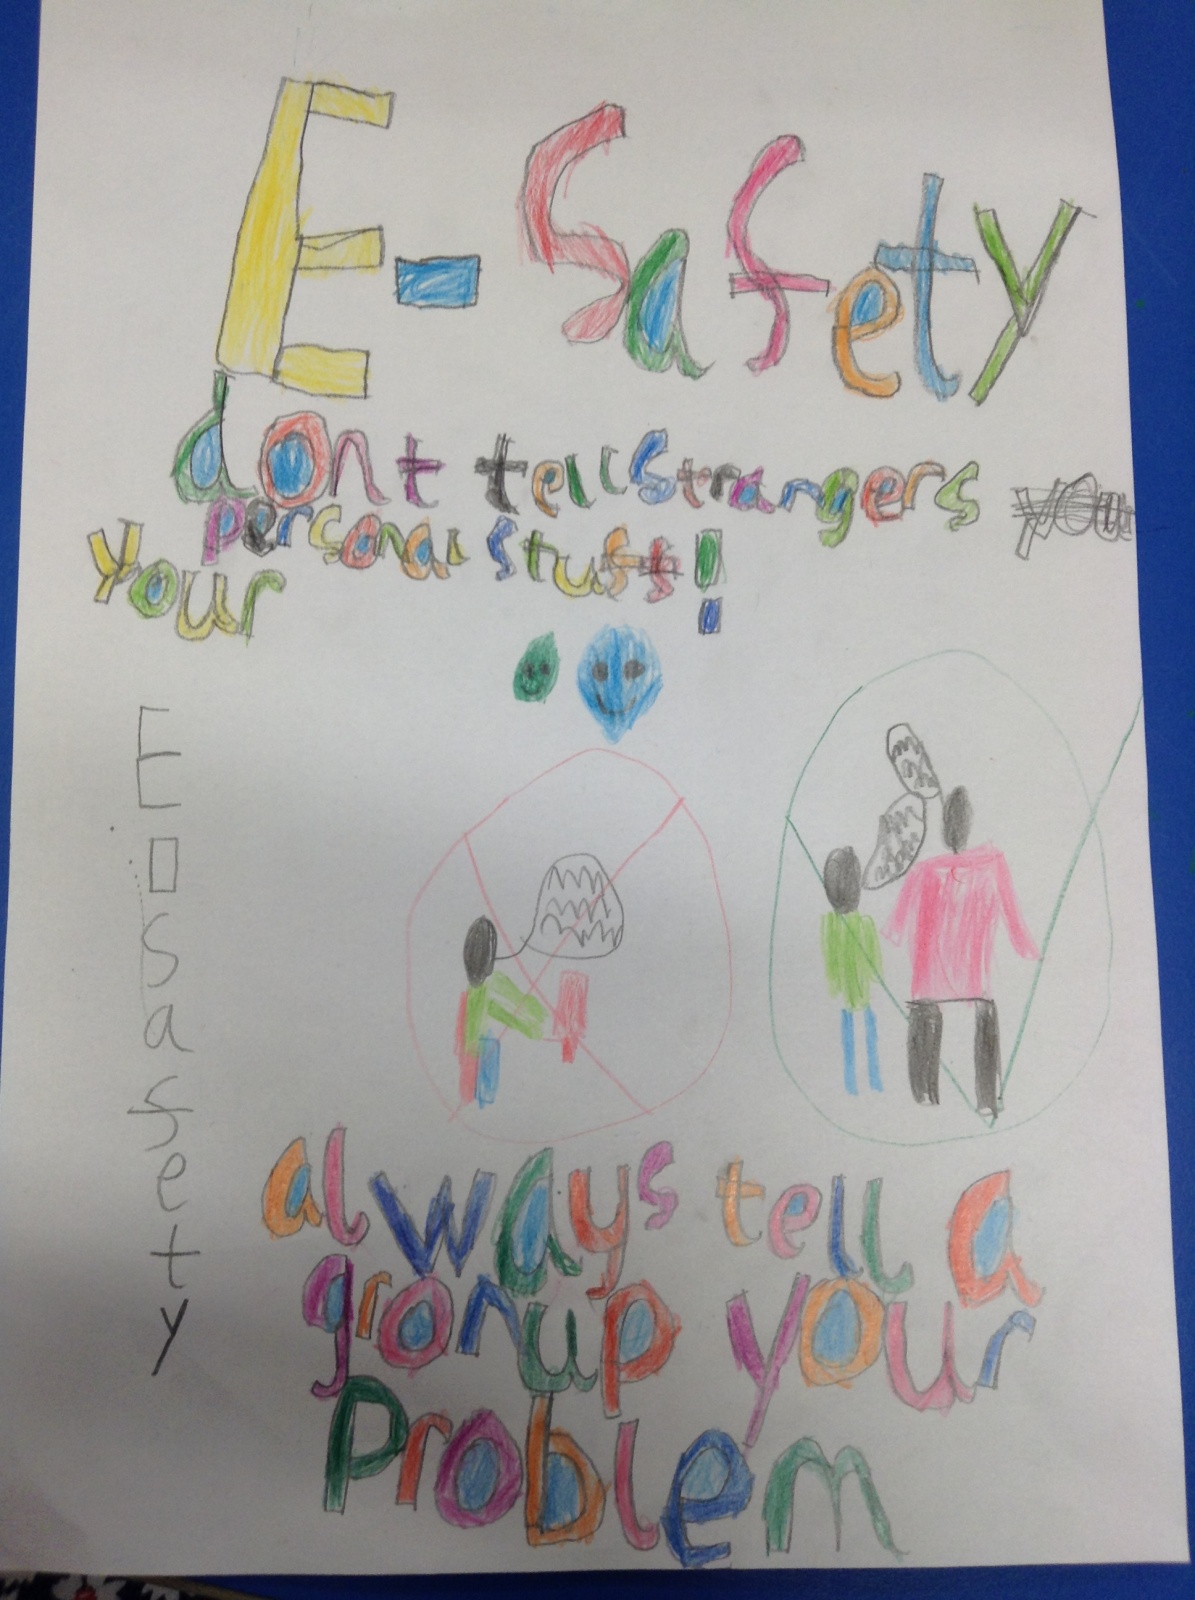 E-Safety
dont tell strangers
your personal stuff!
E-Safety
always tell a
gronup your
problem